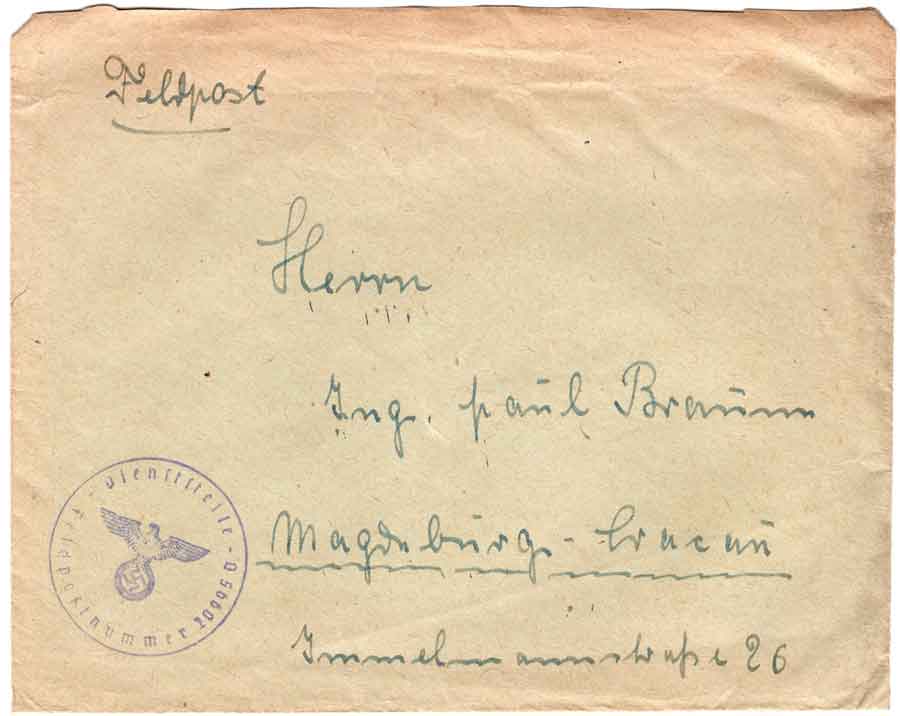 Feldpost
Herrn
Ing. Paul Braune
Magdeburg-Cracau
Immelmannstraße 26
Dienststelle - Feldpostnummer 20995 D -